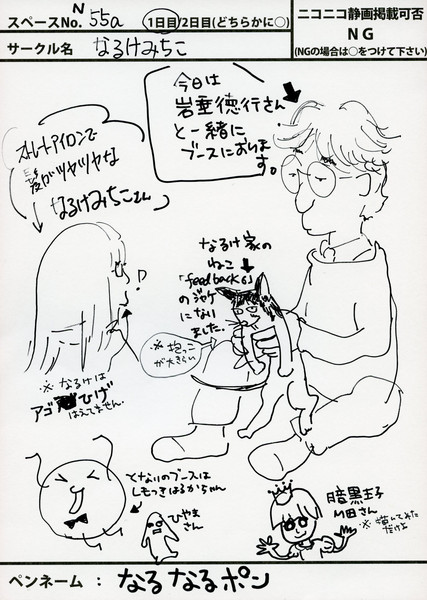 スペースNo. N 55a 1日目/2日目(どちらかに○)
サークル名 なるけみちこ
ニコニコ静画掲載可否
NG
(NGの場合は○をつけて下さい)
今日は
岩垂徳行さん
と一緒に
ブースにおります。
ストレートアイロンで
髪がツヤツヤな
なるけみちこさん
なるけ家の
ねこ
「feed back 6」
のジャケ
にない
ました。
※抱っこ
が大きらい
※なるけは
アゴひげ
はえてません。
となりのブースは
しもつきはるかちゃん
ひやま
さん
暗黒王子
M田さん
※描いてみた
だけよ
ペンネーム : なるなるポン